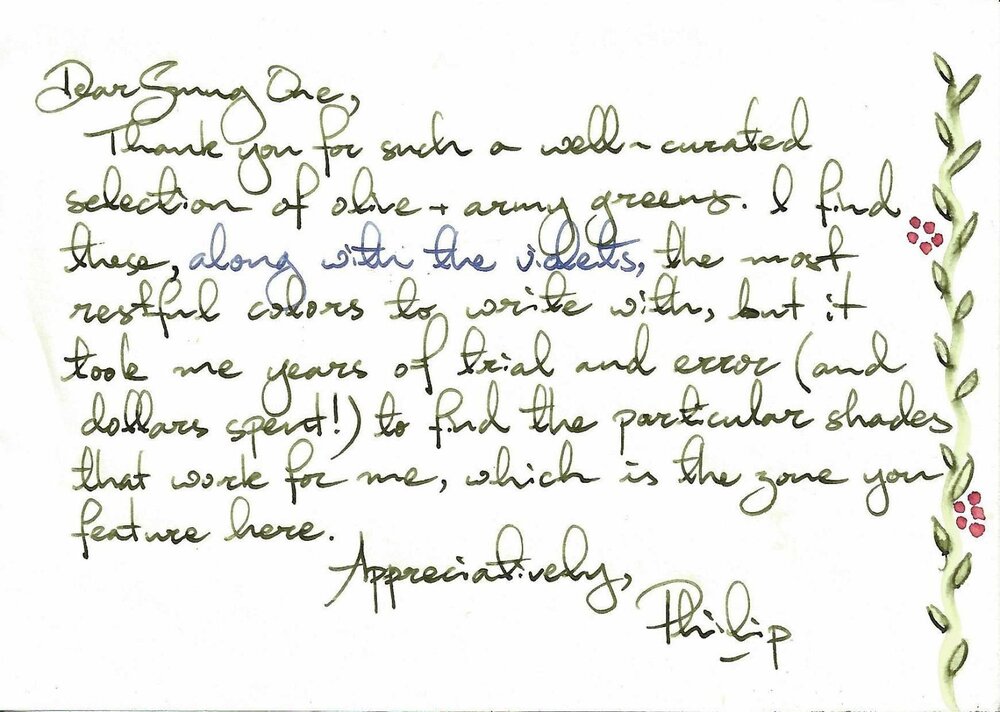 Dear Smug One,
Thank you for such a well-curated
selection of olive + army greens. I find
these, along with the violets, the most
restful colors to write with, but it
took me years of trial and error (and
dollars spent!) to find the particular shades
that work for me, which is the zone you
feature here.
Appreciatively,
Philip